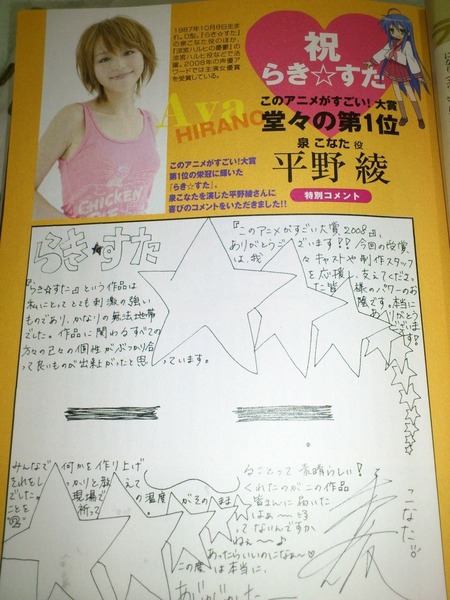 1987年10月8日生ま
れ。O型。『らき☆すた』
の泉こなた役のほか、
『涼宮ハルヒの憂鬱』の
涼宮ハルヒ役などで活
躍。2008年の声優ア
ワードでは主演女優賞
を受賞している。
Aya
HIRANO
CHICKEN
祝
らき☆すた
このアニメがすごい!大賞
堂々の第1位
泉 こなた 役
平野 綾
特別コメント
このアニメがすごい!大賞
第1位の栄冠に輝いた
『らき☆すた』。
泉こなたを演じた平野綾さんに
喜びのコメントをいただきました!!
らき★すた
『らき☆すた』という作品は
私にとってとても刺激の強い
ものであり、かなりの無法地帯
でした。作品に関わるすべての
方々の己々の個性がぶつかり合
って良いものが出来上がったと思っています。
『このアニメがすごい大賞2008』、
ありがとうございます!!今回の受賞
は、我々キャストや制作スタッフ
を応援し、支えてくださっ
た皆様のパワーのお
陰です。本当に
ありがとう
ございます!
みんなで何かを作り上げ
ることって素晴らしい!
それをし
っかりと教えて
くれたのがこの作品
でした。
現場での温度がそのまま
皆さんに届いた
ことを
祈って
はぁ〜です
ってないんですか
ねぇ〜♪
あったらいいのになぁ〜
この度は本当に、
ありがとうございました
こなた